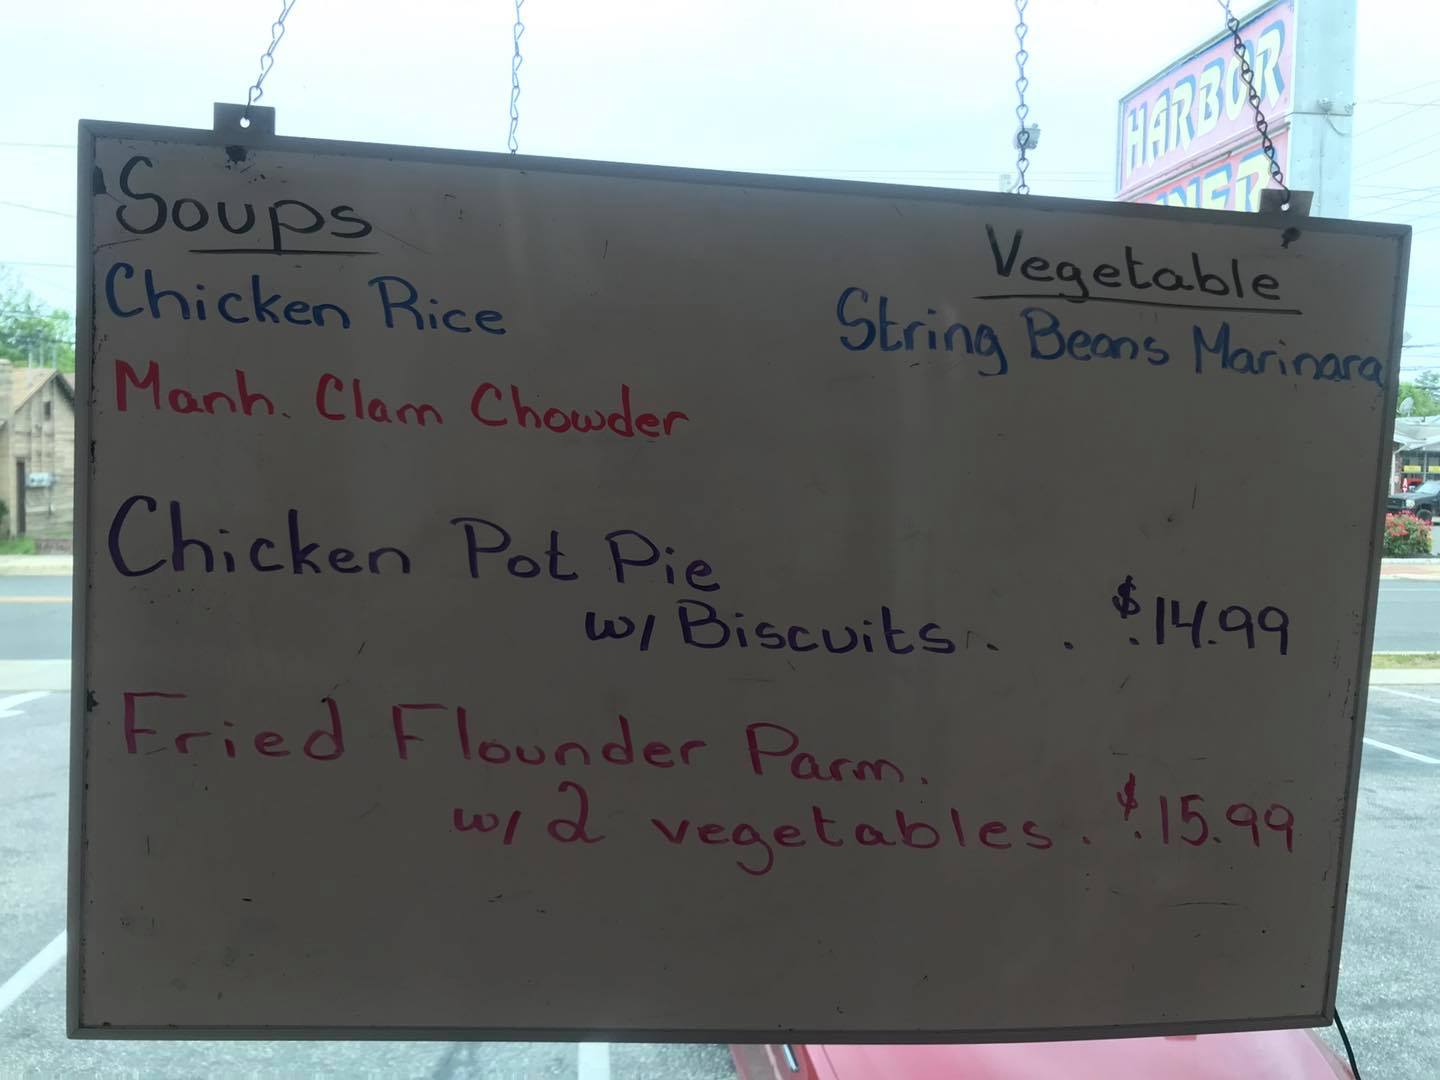 HARBOR
Soups
Chicken Rice
Manh. Clam Chowder
Vegetable
String Beans Marinara
Chicken Pot Pie
w/ Biscuits . . . $14.99
Fried Flounder Parm.
w/ 2 vegetables . . $15.99